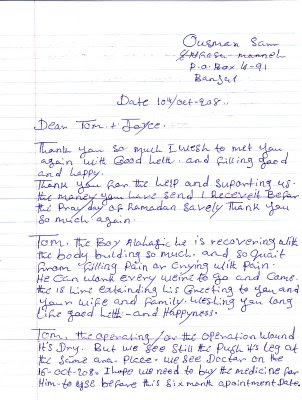 Ousman Sam
P.O. Box 4-91
Banjul
Date 10th/Oct-208..
Dear Tom + Joyce.
Thank you so much I wish to met you
again with Good helth. and filling good
and happy.
Thank you for the help and Suporting us.
the money you have send I Receveit Befor
the Pray day of Ramadan Savely Thank you
So much again.
Tom, the Boy he is recovering with
the body bulding so much. and so Quait
from filling Pain or Crying with Pain.
He Can work every were to go and Came.
the is Live Extainding his Greeting to you and
your wife and Family. wishing you long
Life good helth- and Happyness.
Tom, the operating / or the operation wound
It's Dry. But we See Still the Push it's leg at
the Same Place. we See Doctor on the
15-oct-208. I hope we need to buy the medicine for
Him- to before this Six month apointment Date.